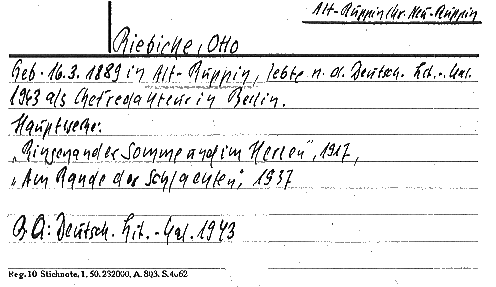 Alt-Ruppin Kr. Neu-Ruppin
Riebicke, Otto
Geb. 16.3.1889 in Alt-Ruppin, lebte n. d. Deutsch. Lit.-Kal.
1943 als Chefredakteur in Berlin.
Hauptwerke:
„Ringen an der Somme und im Herzen", 1917,
„Am Rande der Schlachten", 1937
QA: Deutsch. Lit.-Kal. 1943
Reg. 10 Stichnote, 1. 50. 232000, A. 803. S. 4062